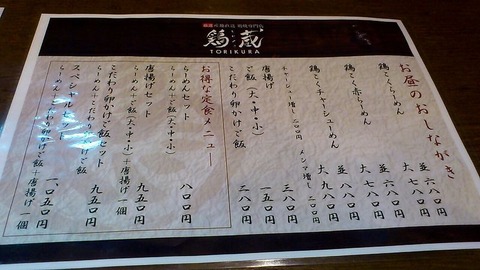 鶏蔵
TORIKURA
お昼のおしながき
鶏こくらーめん
並 六八〇円
大 七八〇円
鶏こく赤らーめん
並 七八〇円
大 八八〇円
鶏こくチャーシューめん
大 九八〇円
チャーシュー増し 二〇〇円 メンマ増し 二〇〇円
ご飯(大・中・小)
唐揚げ 三八〇円
こだわり卵かけご飯 二八〇円
お得な定食メニュー
らーめんセット 八〇〇円
らーめん+ご飯(大・中・小)
唐揚げセット 九五〇円
らーめん+ご飯(大・中・小)+唐揚げ一個
こだわり卵かけご飯セット 九五〇円
らーめん+こだわり卵かけご飯
スペシャルセット 一、〇五〇円
らーめん+こだわり卵かけご飯+唐揚げ一個